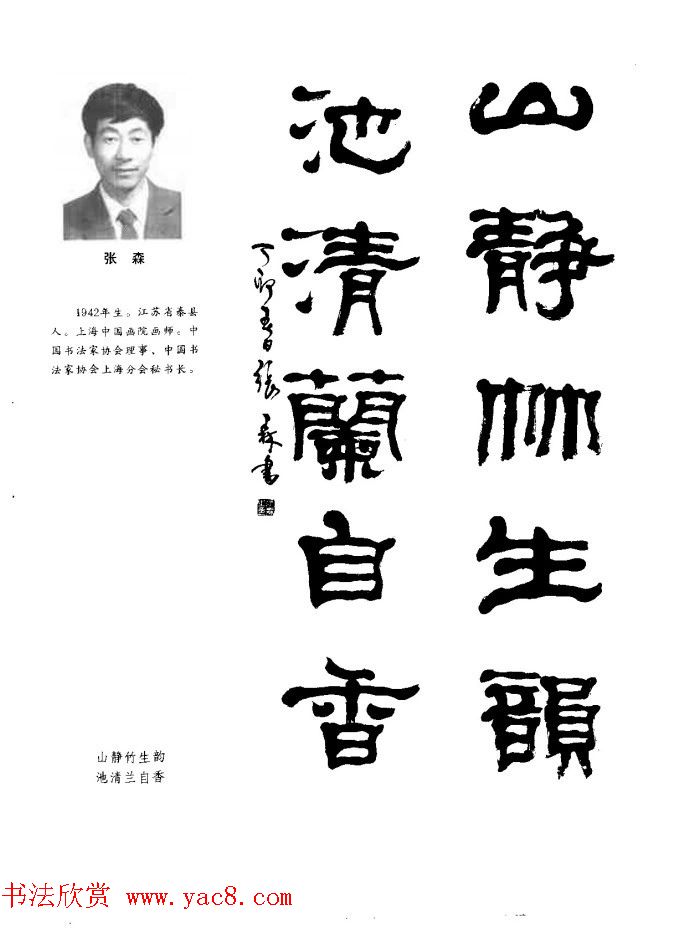 山靜竹生韻
池清蘭自香
丁卯春日張森書
张 森
1942年生。江苏省泰县
人。上海中国画院画师。中
国书法家协会理事、中国书
法家协会上海分会秘书长。
山静竹生韵
池清兰自香
书法欣赏 www.yac8.com